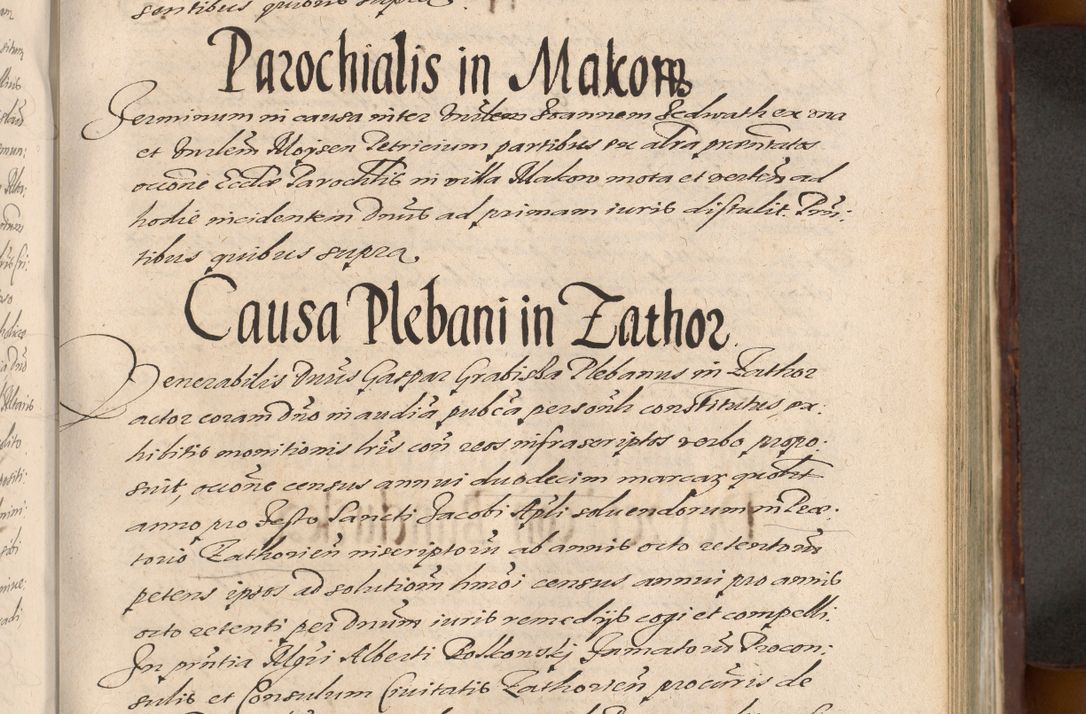 sentibus quibus supra
Parochialis in Makow
Terminum in causa inter Dnũlem Joannem Sedwath ex una
et Dnulẽm Moysen Petricium partibus ex altra præntatos
occõne Eccłæ Parochłis in villa Makow mota et verteñ ad
hodie incidentem Dnũs ad primam iuris distulit. Prñ:
tibus quibus supra.
Causa Plebani in Zathor.
Venerabilis Dnũs Gaspar Grabissa Plebanus in Zathor
actor coram Dño in audiã pubcã personłr constitutus ex:
hibitis monitionis lrĩs coñ reos infrascriptos verbo propo:
suit, occõne census annui duodecim marcar quolt
anno pro Festo Sancti Jacobi Apłi soluendorum in Præ:
torio Zathorieñ inscriptorũ ab annis octo retentorum
petens ipsos ad solutionẽ hmõi census annui pro annis
octo retenti per Dnũm iuris remedijs cogi et compelli.
In prñtia Mgri Alberti Roskonskj Famatorũ Procon:
sulis et Consulum Ciuitatis Zathorieñ procuris de